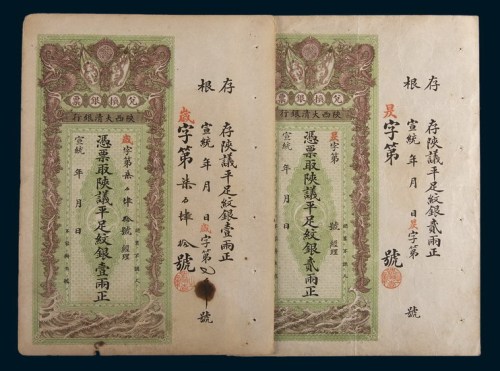 兌換銀票
陝西大清銀行
歲字第柒百肆拾號 經理
憑票取陝議平足紋銀壹兩正
宣統 年 月 日
存根
存陝議平足紋銀壹兩正
宣統 年 月 日 歲字第 號
歲字第柒百肆拾號
兌換銀票
陝西大清銀行
昃字第 號 經理
憑票取陝議平足紋銀貳兩正
宣統 年 月 日
存根
存陝議平足紋銀貳兩正
宣統 年 月 日 昃字第 號
昃字第 號